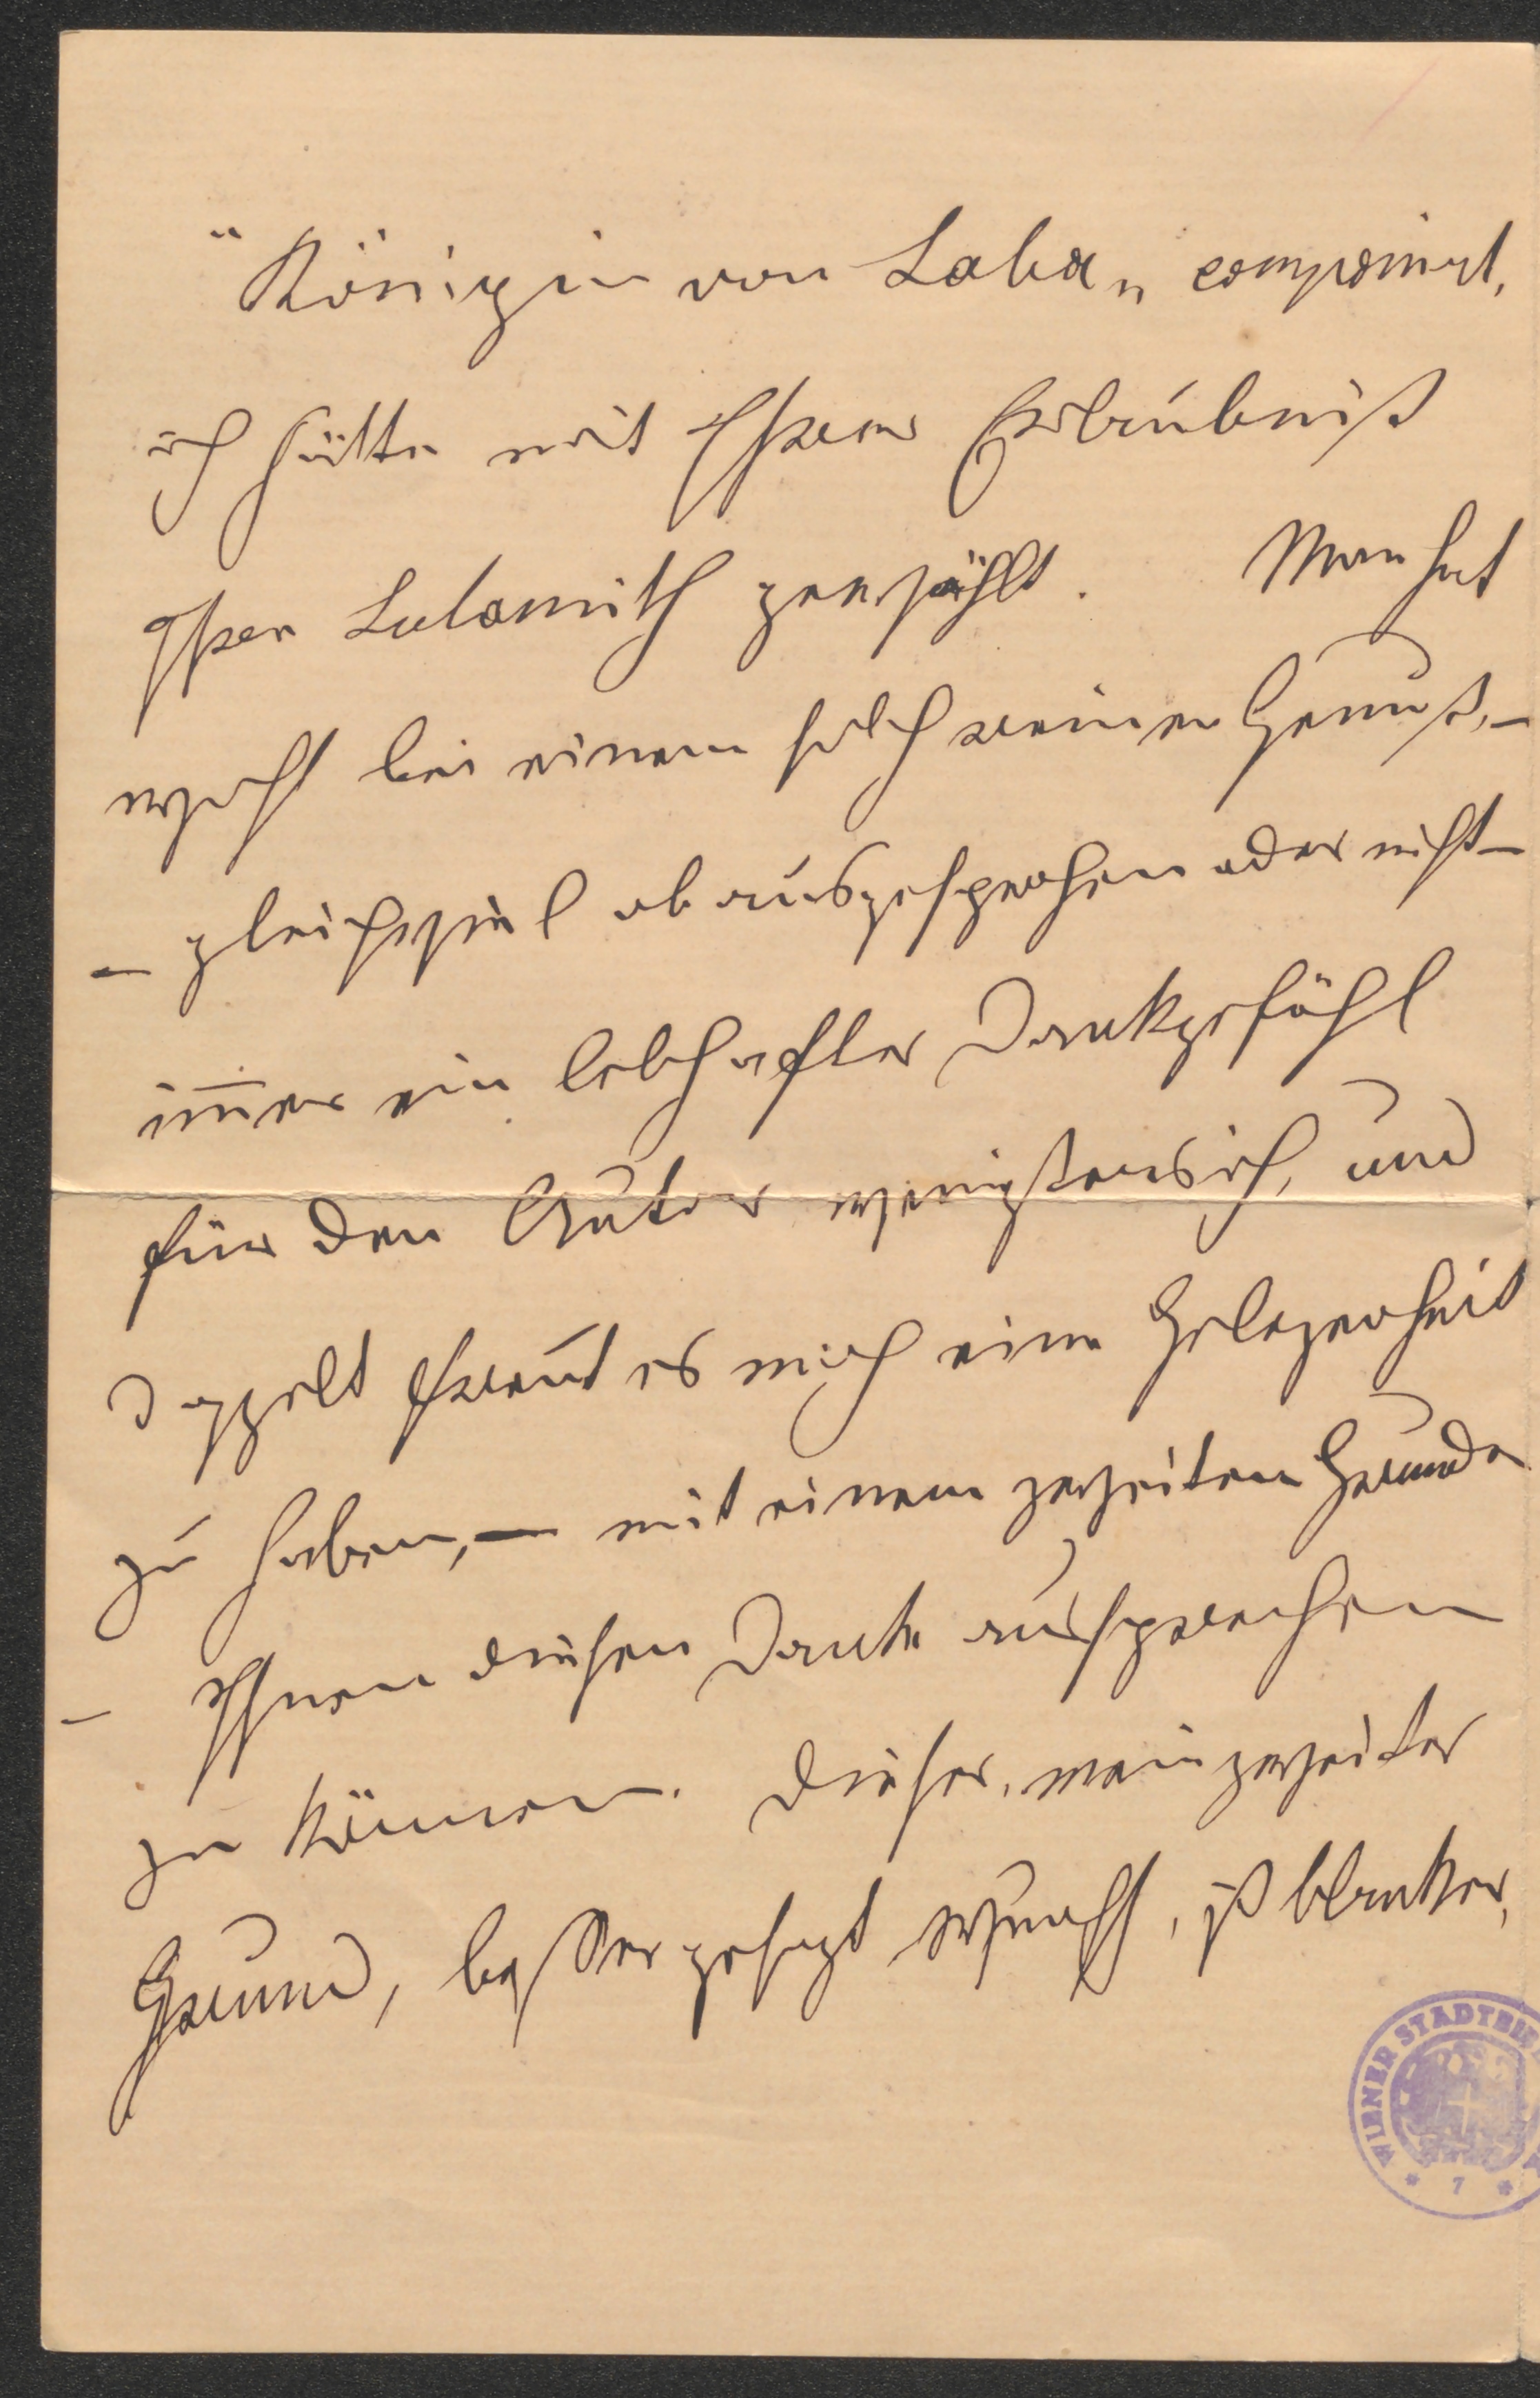 "Königin von Saba„ componirt,
ich hätte mit Ihrer Erlaubniß
Ihre Sulamith gewählt. Man hat
wohl bei einem solch reinen Genuß, –
– gleichviel ob ausgesprochen oder nicht –
im̅er ein lebhaftes Dankgefühl
für den Autor wenigstens ich, und
doppelt freut es mich eine Gelegenheit
zu haben, – mit einem zweiten Grunde
– Ihnen diesen Dank aussprechen
zu können. Dieser, mein zweiter
Grund, besser gesagt Wunsch, ist blanker,
WIENER STADTBI
* 7 *